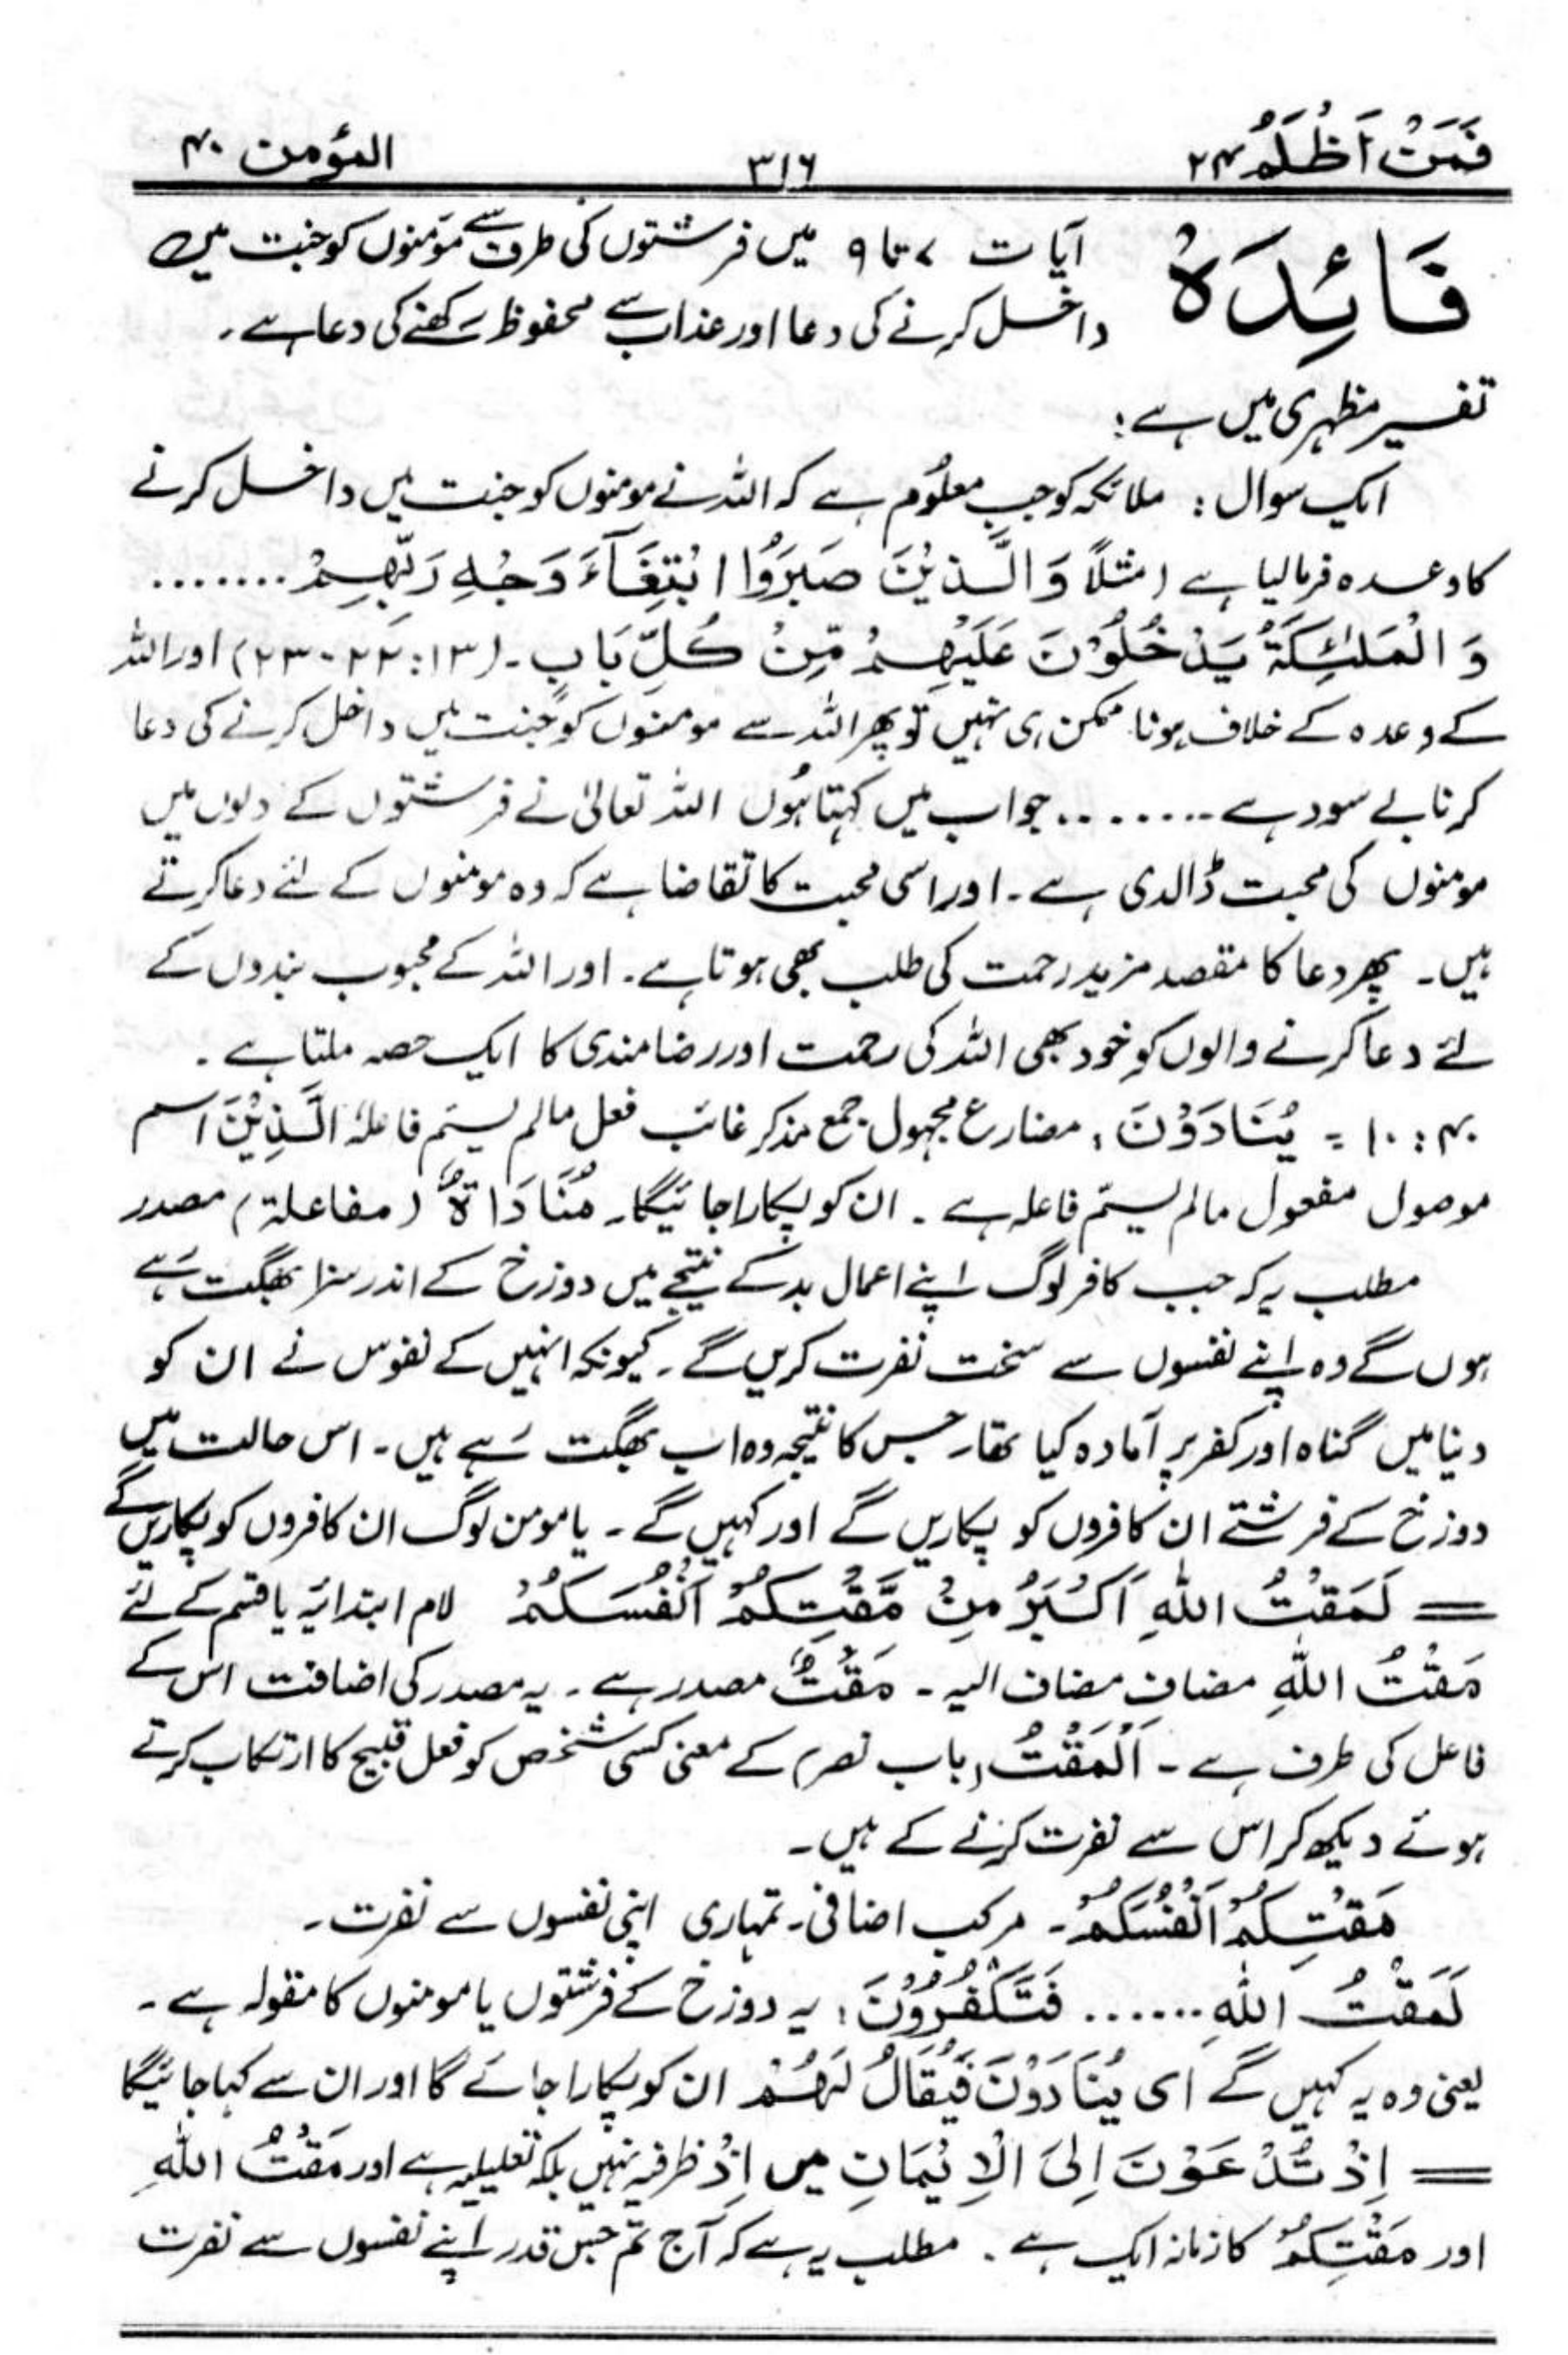 فَمَنْ اَظْلَمُ ۲۴ ۳۱۶ المؤمن ۴۰
فَائِدَہُ آیات ۷ تا ۹ میں فرشتوں کی طرف سے مؤمنوں کو جنت میں
داخل کرنے کی دعا اور عذاب سے محفوظ رکھنے کی دعا ہے۔
تفسیر مظہری میں ہے:
ایک سوال: ملائکہ کو جب معلُوم ہے کہ اللہ نے مومنوں کو جنت میں داخل کرنے
کا وعدہ فرمالیا ہے (مثلاً وَالَّذِیْنَ صَبَرُوا ابْتِغَآءَ وَجْہِ رَبِّهِمْ .......
وَ الْمَلٰئِكَةُ يَدْخُلُوْنَ عَلَيْهِمْ مِّنْ كُلِّ بَابٍ۔ (۱۳: ۲۲-۲۳) اور اللہ
کے وعدہ کے خلاف ہونا ممکن ہی نہیں تو پھر اللہ سے مومنوں کو جنت میں داخل کرنے کی دعا
کرنا بے سود ہے ........ جواب میں کہتا ہُوں اللہ تعالیٰ نے فرشتوں کے دلوں میں
مومنوں کی محبت ڈالدی ہے۔ اور اسی محبت کا تقاضا ہے کہ وہ مومنوں کے لئے دعا کرتے
ہیں۔ پھر دعا کا مقصد مزید رحمت کی طلب بھی ہوتا ہے۔ اور اللہ کے محبوب بندوں کے
لئے دعا کرنے والوں کو خود بھی اللہ کی رحمت اور رضامندی کا ایک حصہ ملتا ہے۔
۴۰: ۱۰ = يُنَادَوْنَ، مضارع مجہول جمع مذکر غائب فعل مالم لیسمّ فاعلہٗ الَّذِیْنَ اسم
موصول مفعول مالم لیسمّ فاعلہ ہے۔ ان کو پکارا جائیگا۔ مُنَادَاۃٌ (مفاعلۃ) مصدر
مطلب یہ کہ جب کافر لوگ اپنے اعمال بد کے نتیجے میں دوزخ کے اندر سزا بھگت رہے
ہوں گے وہ اپنے نفسوں سے سخت نفرت کریں گے۔ کیونکہ انہیں کے نفوس نے ان کو
دنیا میں گناہ اور کفر پر آمادہ کیا تھا۔ جس کا نتیجہ وہ اب بھگت رہے ہیں۔ اس حالت میں
دوزخ کے فرشتے ان کافروں کو پکاریں گے اور کہیں گے۔ یا مومن لوگ ان کافروں کو پکاریں گے
= لَمَقْتُ اللّٰهِ اَكْبَرُ مِنْ مَّقْتِكُمْ اَنْفُسَكُمْ لام ابتدائیہ یا قسم کے لئے
مَقْتُ اللّٰهِ مضاف مضاف الیہ۔ مَقْتٌ مصدر ہے۔ یہ مصدر کی اضافت اس کے
فاعل کی طرف ہے۔ اَلْمَقْتُ (باب نصر) کے معنی کسی شخص کو فعل قبیح کا ارتکاب کرتے
ہوئے دیکھ کر اس سے نفرت کرنے کے ہیں۔
مَقْتِكُمْ اَنْفُسَكُمْ۔ مرکب اضافی۔ تمہاری اپنی نفسوں سے نفرت۔
لَمَقْتُ اللّٰهِ ...... فَتَكْفُرُوْنَ: یہ دوزخ کے فرشتوں یا مومنوں کا مقولہ ہے۔
یعنی وہ یہ کہیں گے ای يُنَادَوْنَ فَيُقَالُ لَهُمْ ان کو پکارا جائے گا اور ان سے کہا جائیگا
= اِذْ تُدْعَوْنَ اِلَى الْاِيْمَانِ میں اِذْ ظرفیہ نہیں بلکہ تعلیلیہ ہے اور مَقْتُ اللّٰهِ
اور مَقْتِكُمْ کا زمانہ ایک ہے۔ مطلب یہ ہے کہ آج تم جس قدر اپنے نفسوں سے نفرت